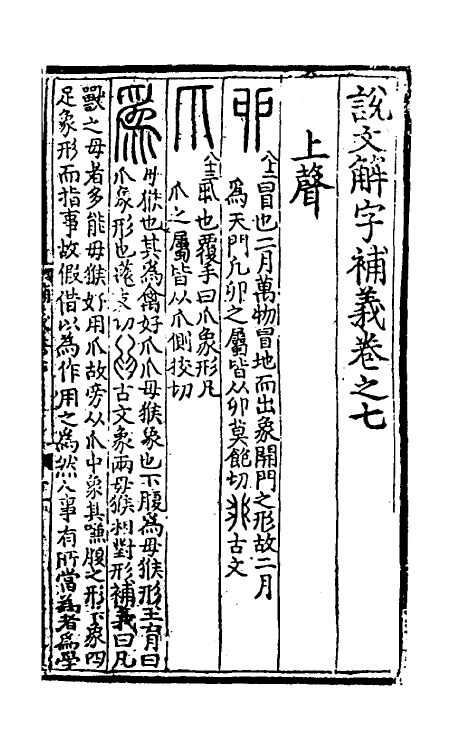 說文解字補義卷之七
上聲
冒也二月萬物冒地而出象開門之形故二月
為天門凡卯之屬皆从卯莫飽切 古文
爪 也覆手曰爪象形凡
爪之屬皆从爪側狡切
為 母猴也其為禽好爪爪母猴象也下腹為母猴形王育曰
爪象形也薳支切 古文象兩母猴相對形補義曰凡
獸之毋者多能毋猴好用爪故旁从爪中象其 腹之形下象四
足象形而指事故假借以為作用之為然人事有所當為者為學